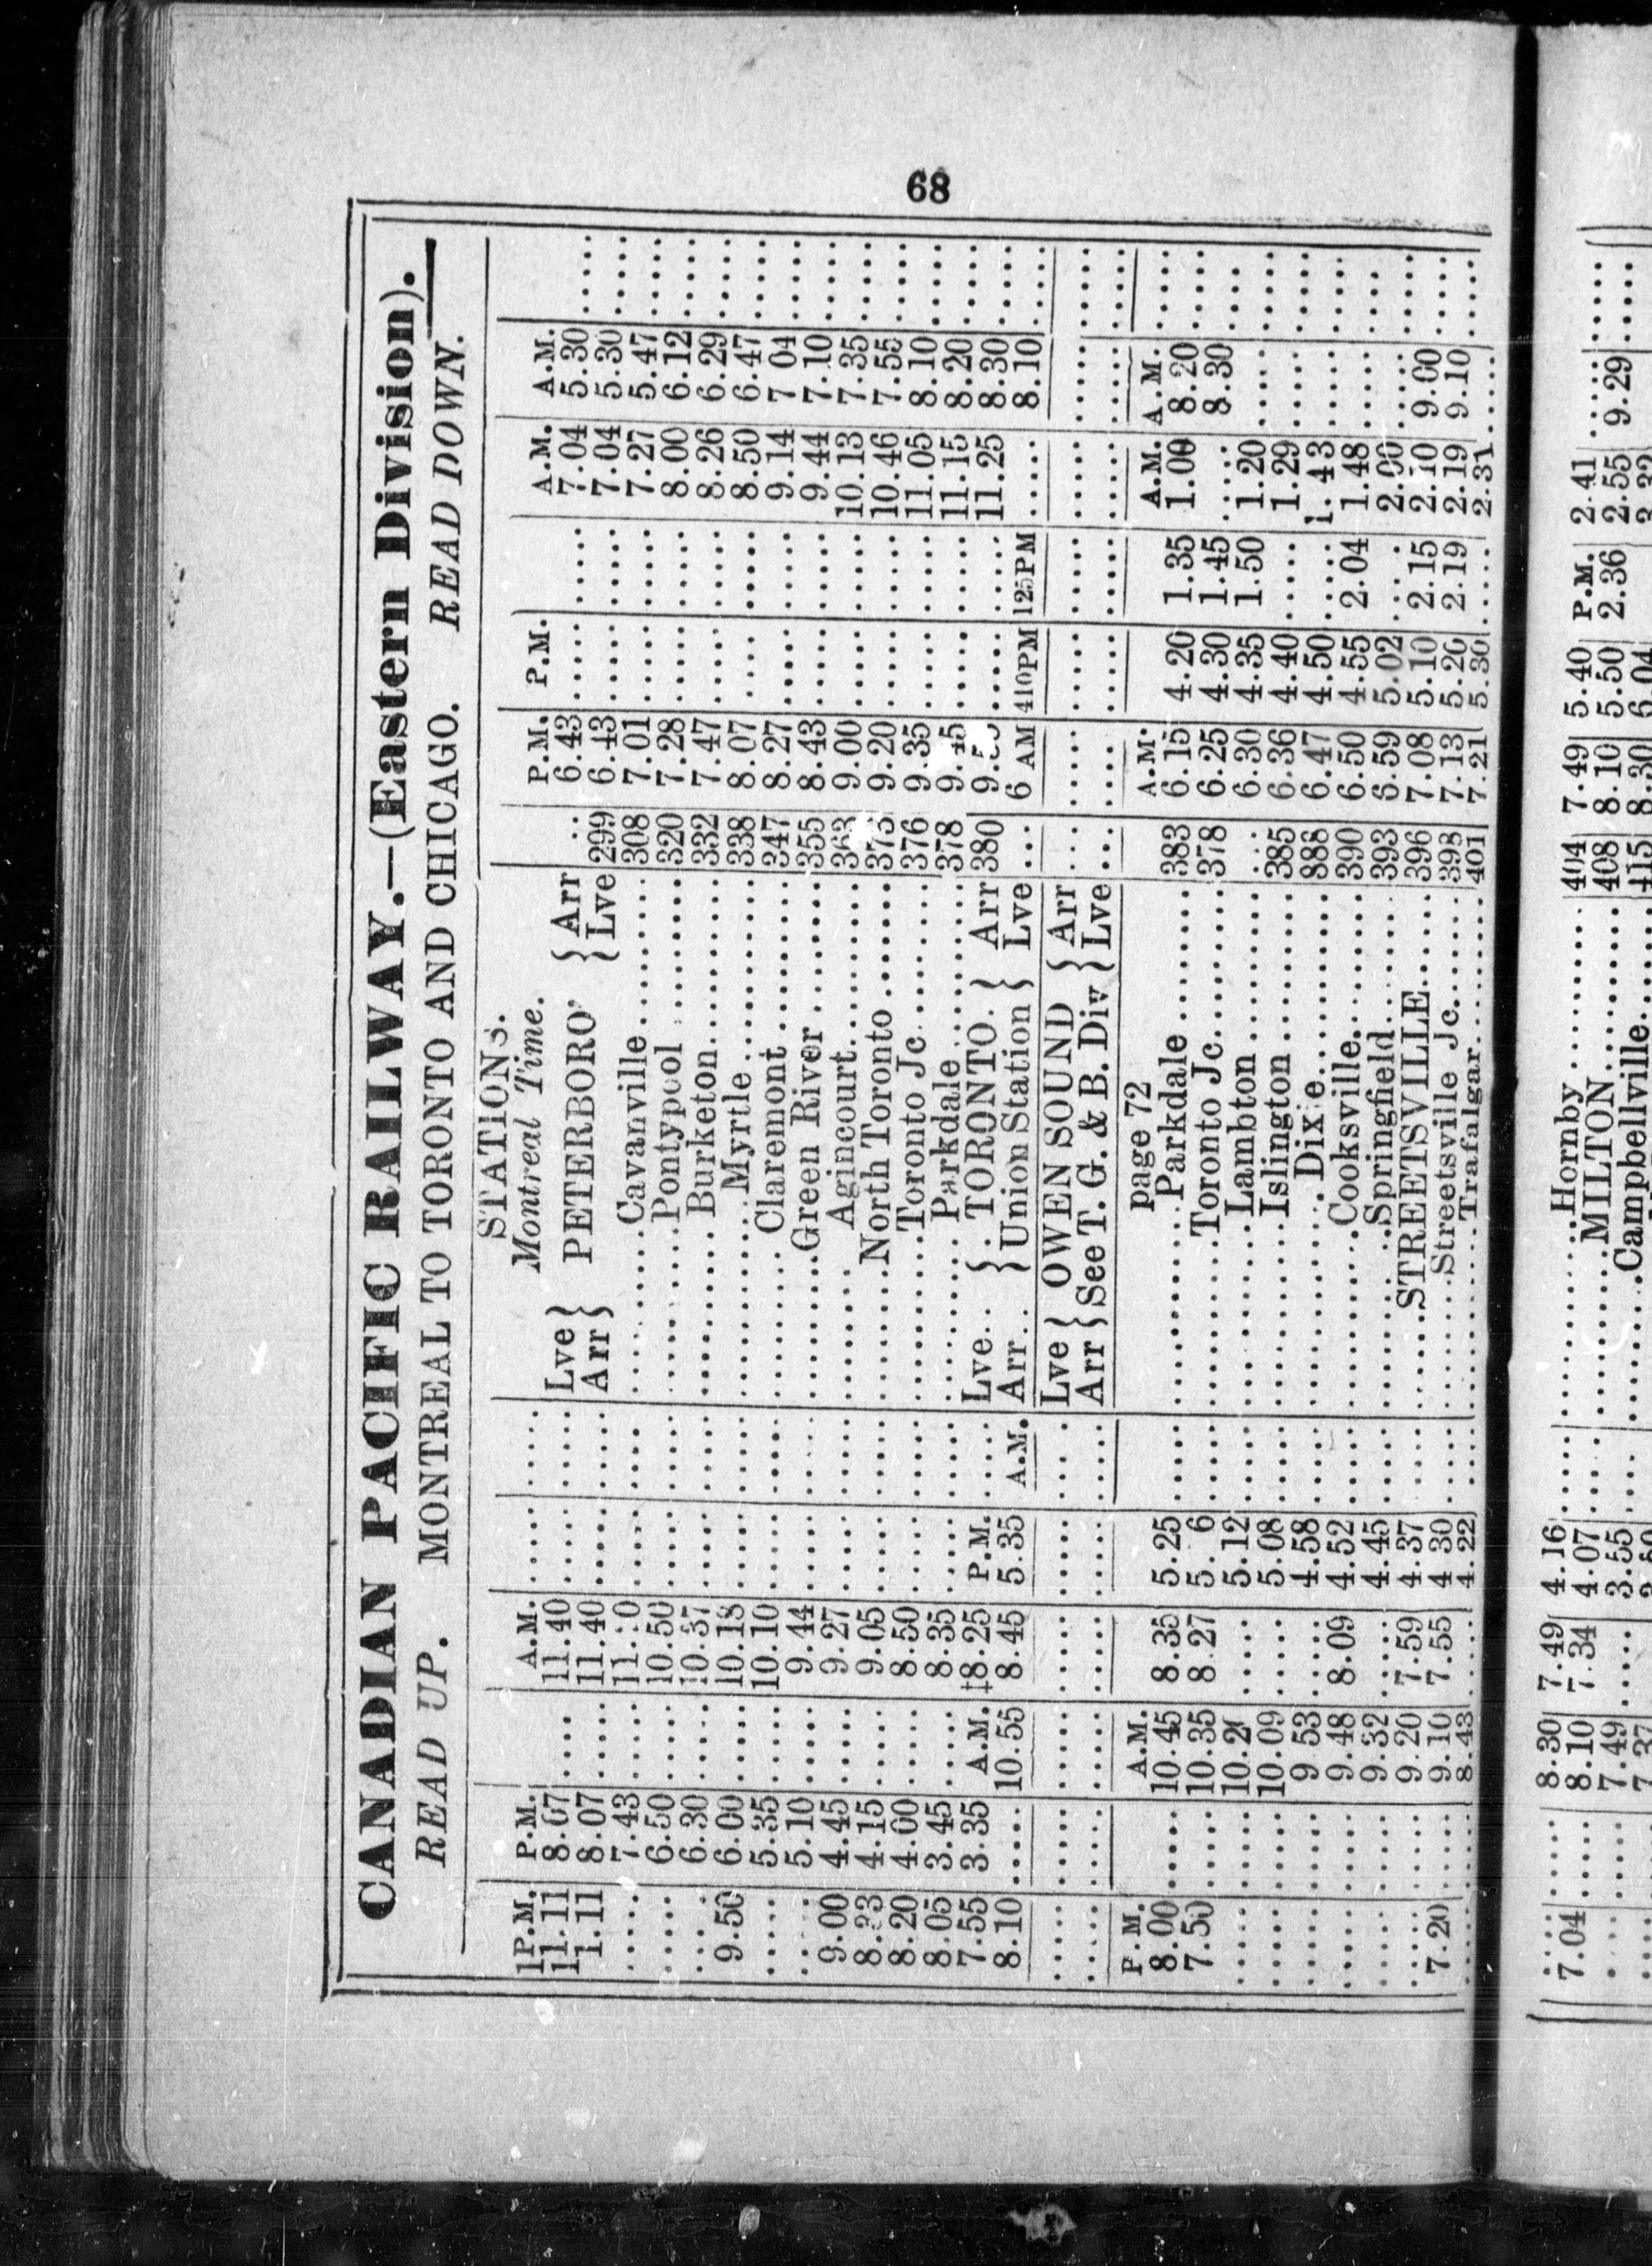 68
CANADIAN PACIFIC RAILWAY.—(Eastern Division).
READ UP. MONTREAL TO TORONTO AND CHICAGO. READ DOWN.
STATIONS.
1P.M. P.M. A.M. Montreal Time. P.M. P.M. A.M. A.M.
11.11 8.07 .... 11.40 .... .... Lve } PETERBORO' { Arr ... 6.43 .... .... 7.04 5.30 ....
1.11 8.07 .... 11.40 .... .... Arr } { Lve 299 6.43 .... .... 7.04 5.30 ....
.... 7.43 .... .... .... Cavanville 308 7.01 .... .... 7.27 5.47 ....
.... 6.50 .... 10.50 .... .... Pontypool 320 7.28 .... .... 8.00 6.12 ....
.... 6.30 .... 10.37 .... .... Burketon 332 7.47 .... .... 8.26 6.29 ....
9.50 6.00 .... 10.18 .... .... Myrtle 338 8.07 .... .... 8.50 6.47 ....
.... 5.35 .... 10.10 .... .... Claremont 347 8.27 .... .... 9.14 7 04 ....
.... 5.10 .... 9.44 .... .... Green River 355 8.43 .... .... 9.44 7.10 ....
9.00 4.45 .... 9.27 .... .... Agincourt 363 9.00 .... .... 10.13 7.35 ....
8.33 4.15 .... 9.05 .... .... North Toronto 373 9.20 .... .... 10.46 7.55 ....
8.20 4.00 .... 8.50 .... .... Toronto Jc 376 9.35 .... .... 11.05 8.10 ....
8.05 3.45 .... 8.35 .... .... Parkdale 378 9.45 .... .... 11.15 8.20 ....
7.55 3.35 A.M. ‡8.25 P.M. .... Lve } TORONTO } Arr 380 .... .... 11.25 8.30 ....
8.10 .... 10.55 8.45 5.35 A.M. Arr } Union Station } Lve ... 6 AM 410PM 125PM .... 8.10 ....
.... .... .... .... .... .... Lve } OWEN SOUND { Arr ... .... .... .... .... .... ....
.... .... .... .... .... .... Arr } See T. G. & B. Div { Lve ... .... .... .... .... .... ....
P.M. A.M. page 72 A.M. A.M. A.M.
8.00 .... 10.45 8.35 5.25 .... Parkdale 383 6.15 4.20 1.35 1.00 8.20 ....
7.50 .... 10.35 8.27 5. 6 .... Toronto Jc 378 6.25 4.30 1.45 .... 8.30 ....
.... .... .... 5.12 .... Lambton ... 6.30 4.35 1.50 1.20 .... ....
.... .... 10.09 .... 5.08 .... Islington 385 6.36 4.40 .... 1.29 .... ....
.... .... 9.53 .... 4.58 .... Dixie 388 6.47 4.50 .... 1.43 .... ....
.... .... 9.48 8.09 4.52 .... Cooksville 390 6.50 4.55 2.04 1.48 .... ....
.... .... 9.32 .... 4.45 .... Springfield 393 6.59 5.02 .... 2.00 .... ....
.... .... 9.20 7.59 4.37 .... STREETSVILLE 396 7.08 5.10 2.15 2.10 9.00 ....
7.20 .... 9.10 7.55 4.30 .... Streetsville Jc 398 7.13 5.20 2.19 2.19 9.10 ....
.... .... 8.43 .... 4.22 .... Trafalgar 401 7.21 5.30 .... 2.31 .... ....
.... .... 8.30 7.49 4.16 .... Hornby 404 7.49 5.40 P.M. 2.41 ....
7.04 .... 8.10 7.34 4.07 .... MILTON 408 8.10 5.50 2.36 2.55 9.29 ....
.... .... 7.49 .... 3.55 .... Campbellville 415 8.30 6.04
7.37